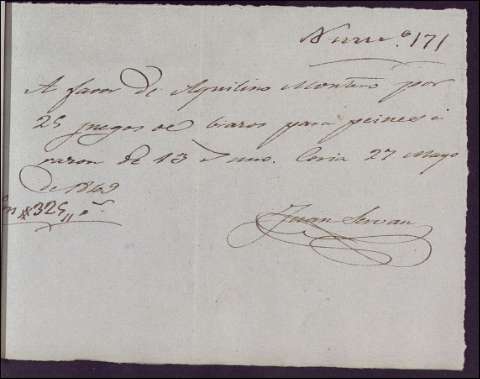 Num.º 171
A favor de Aquilino Montero por
25 juegos de biaros para peines á
razon de 13 r uno. Coria 27 Mayo
de 1869
#325,,
Juan Servan